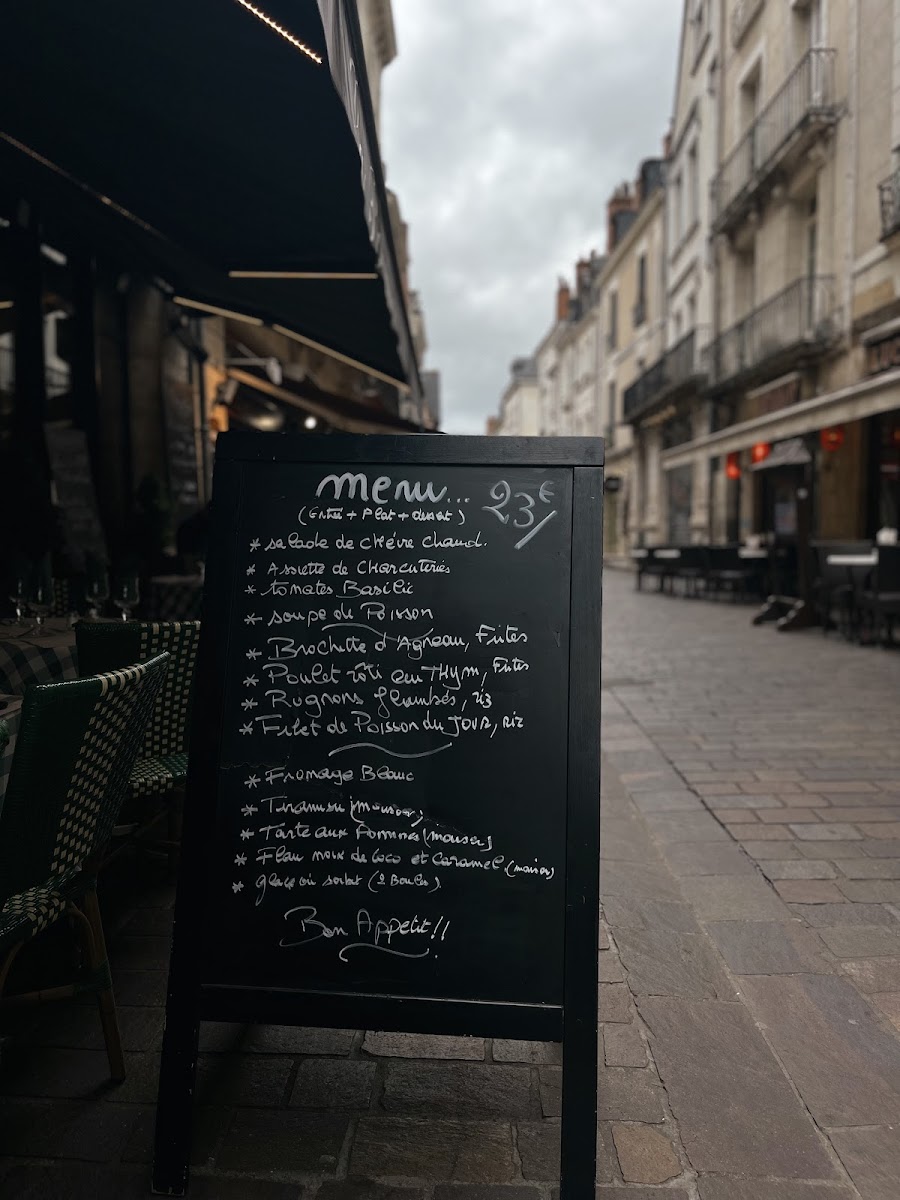 menu... 23€
(Entrée + Plat + dessert)
* salade de chèvre chaud.
* Assiette de CHarcuteries
* tomates Basilic
* soupe de Poisson
* Brochette d'Agneau, Frites
* Poulet rôti au THym, Frites
* Rognons flambés, riz
* Filet de Poisson du JOUR, riz
* Fromage Blanc
* Tiramisu (maison)
* Tarte aux Pommes (maison)
* Flan noix de Coco et Caramel (maison)
* glace où sorbet (2 Boules)
Bon Appetit!!